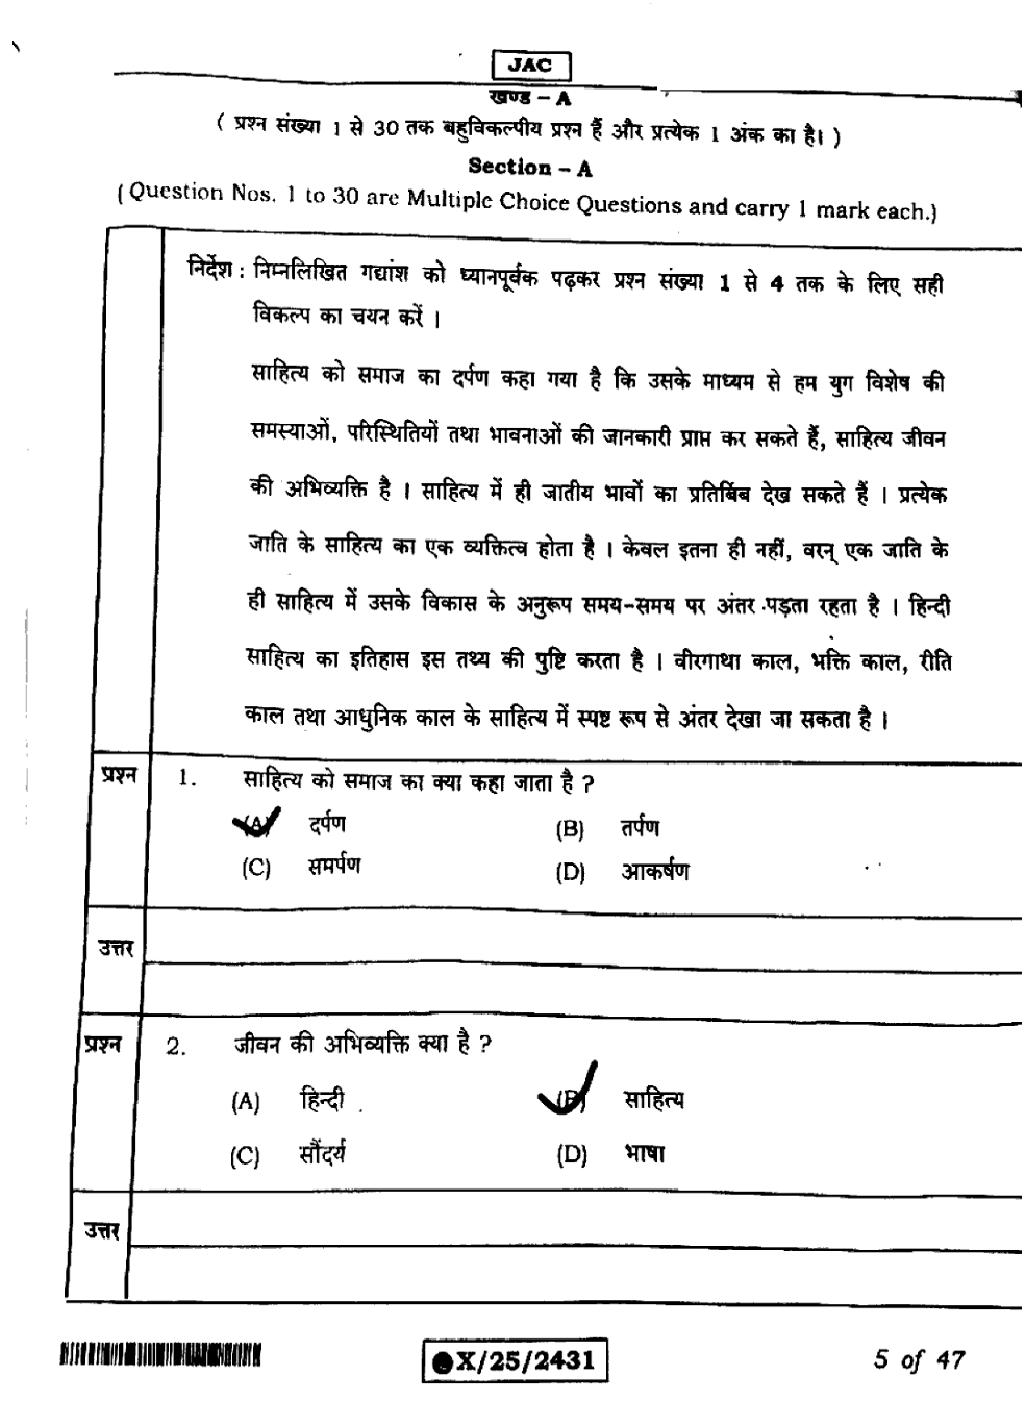 JAC
खण्ड – A
( प्रश्न संख्या 1 से 30 तक बहुविकल्पीय प्रश्न हैं और प्रत्येक 1 अंक का है। )
Section – A
(Question Nos. 1 to 30 are Multiple Choice Questions and carry 1 mark each.)
निर्देश : निम्नलिखित गद्यांश को ध्यानपूर्वक पढ़कर प्रश्न संख्या 1 से 4 तक के लिए सही
विकल्प का चयन करें ।
साहित्य को समाज का दर्पण कहा गया है कि उसके माध्यम से हम युग विशेष की
समस्याओं, परिस्थितियों तथा भावनाओं की जानकारी प्राप्त कर सकते हैं, साहित्य जीवन
की अभिव्यक्ति है । साहित्य में ही जातीय भावों का प्रतिबिंब देख सकते हैं । प्रत्येक
जाति के साहित्य का एक व्यक्तित्व होता है । केवल इतना ही नहीं, वरन् एक जाति के
ही साहित्य में उसके विकास के अनुरूप समय-समय पर अंतर पड़ता रहता है । हिन्दी
साहित्य का इतिहास इस तथ्य की पुष्टि करता है । वीरगाथा काल, भक्ति काल, रीति
काल तथा आधुनिक काल के साहित्य में स्पष्ट रूप से अंतर देखा जा सकता है ।
प्रश्न 1. साहित्य को समाज का क्या कहा जाता है ?
(A) दर्पण (B) तर्पण
(C) समर्पण (D) आकर्षण
उत्तर
प्रश्न 2. जीवन की अभिव्यक्ति क्या है ?
(A) हिन्दी (B) साहित्य
(C) सौंदर्य (D) भाषा
उत्तर
X/25/2431 5 of 47